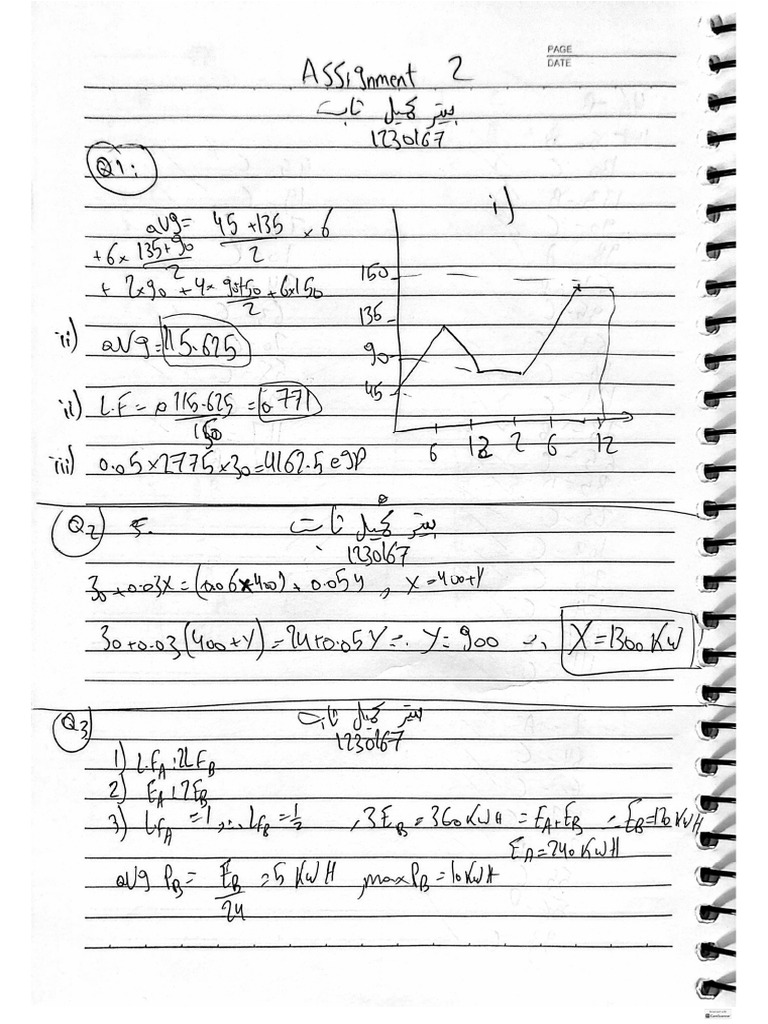 PAGE
DATE
Assignment 2
بيتر كميل ثابت
1230167
Q1:
avg= 45+135/2 ×6
+6× 135+90/2
+ 2×90 +4× 90+150/2 +6×150
ii) avg= 115.625
ii) L.F= 115.625/150 = 0.771
iii) 0.05×2775×30=4162.5 egp
i)
150
135
90
45
6 12 2 6 12
Q2 5.
بيتر كميل ثابت
1230167
30+0.03X=(0.06×400)+0.05Y, X=400+Y
30+0.03(400+Y)=24+0.05Y ∴ Y=900 ∴ X=1300KW
Q3
بيتر كميل ثابت
1230167
1) L.FA:2LFB
2) EA:2EB
3) LFA=1, ∴ LFB=1/2 , 3EB=360KWH = EA+EB ∴ EB=120KWH
EA=240KWH
avg PB= EB/24 =5KWH , maxPB=10KWH
CamScanner